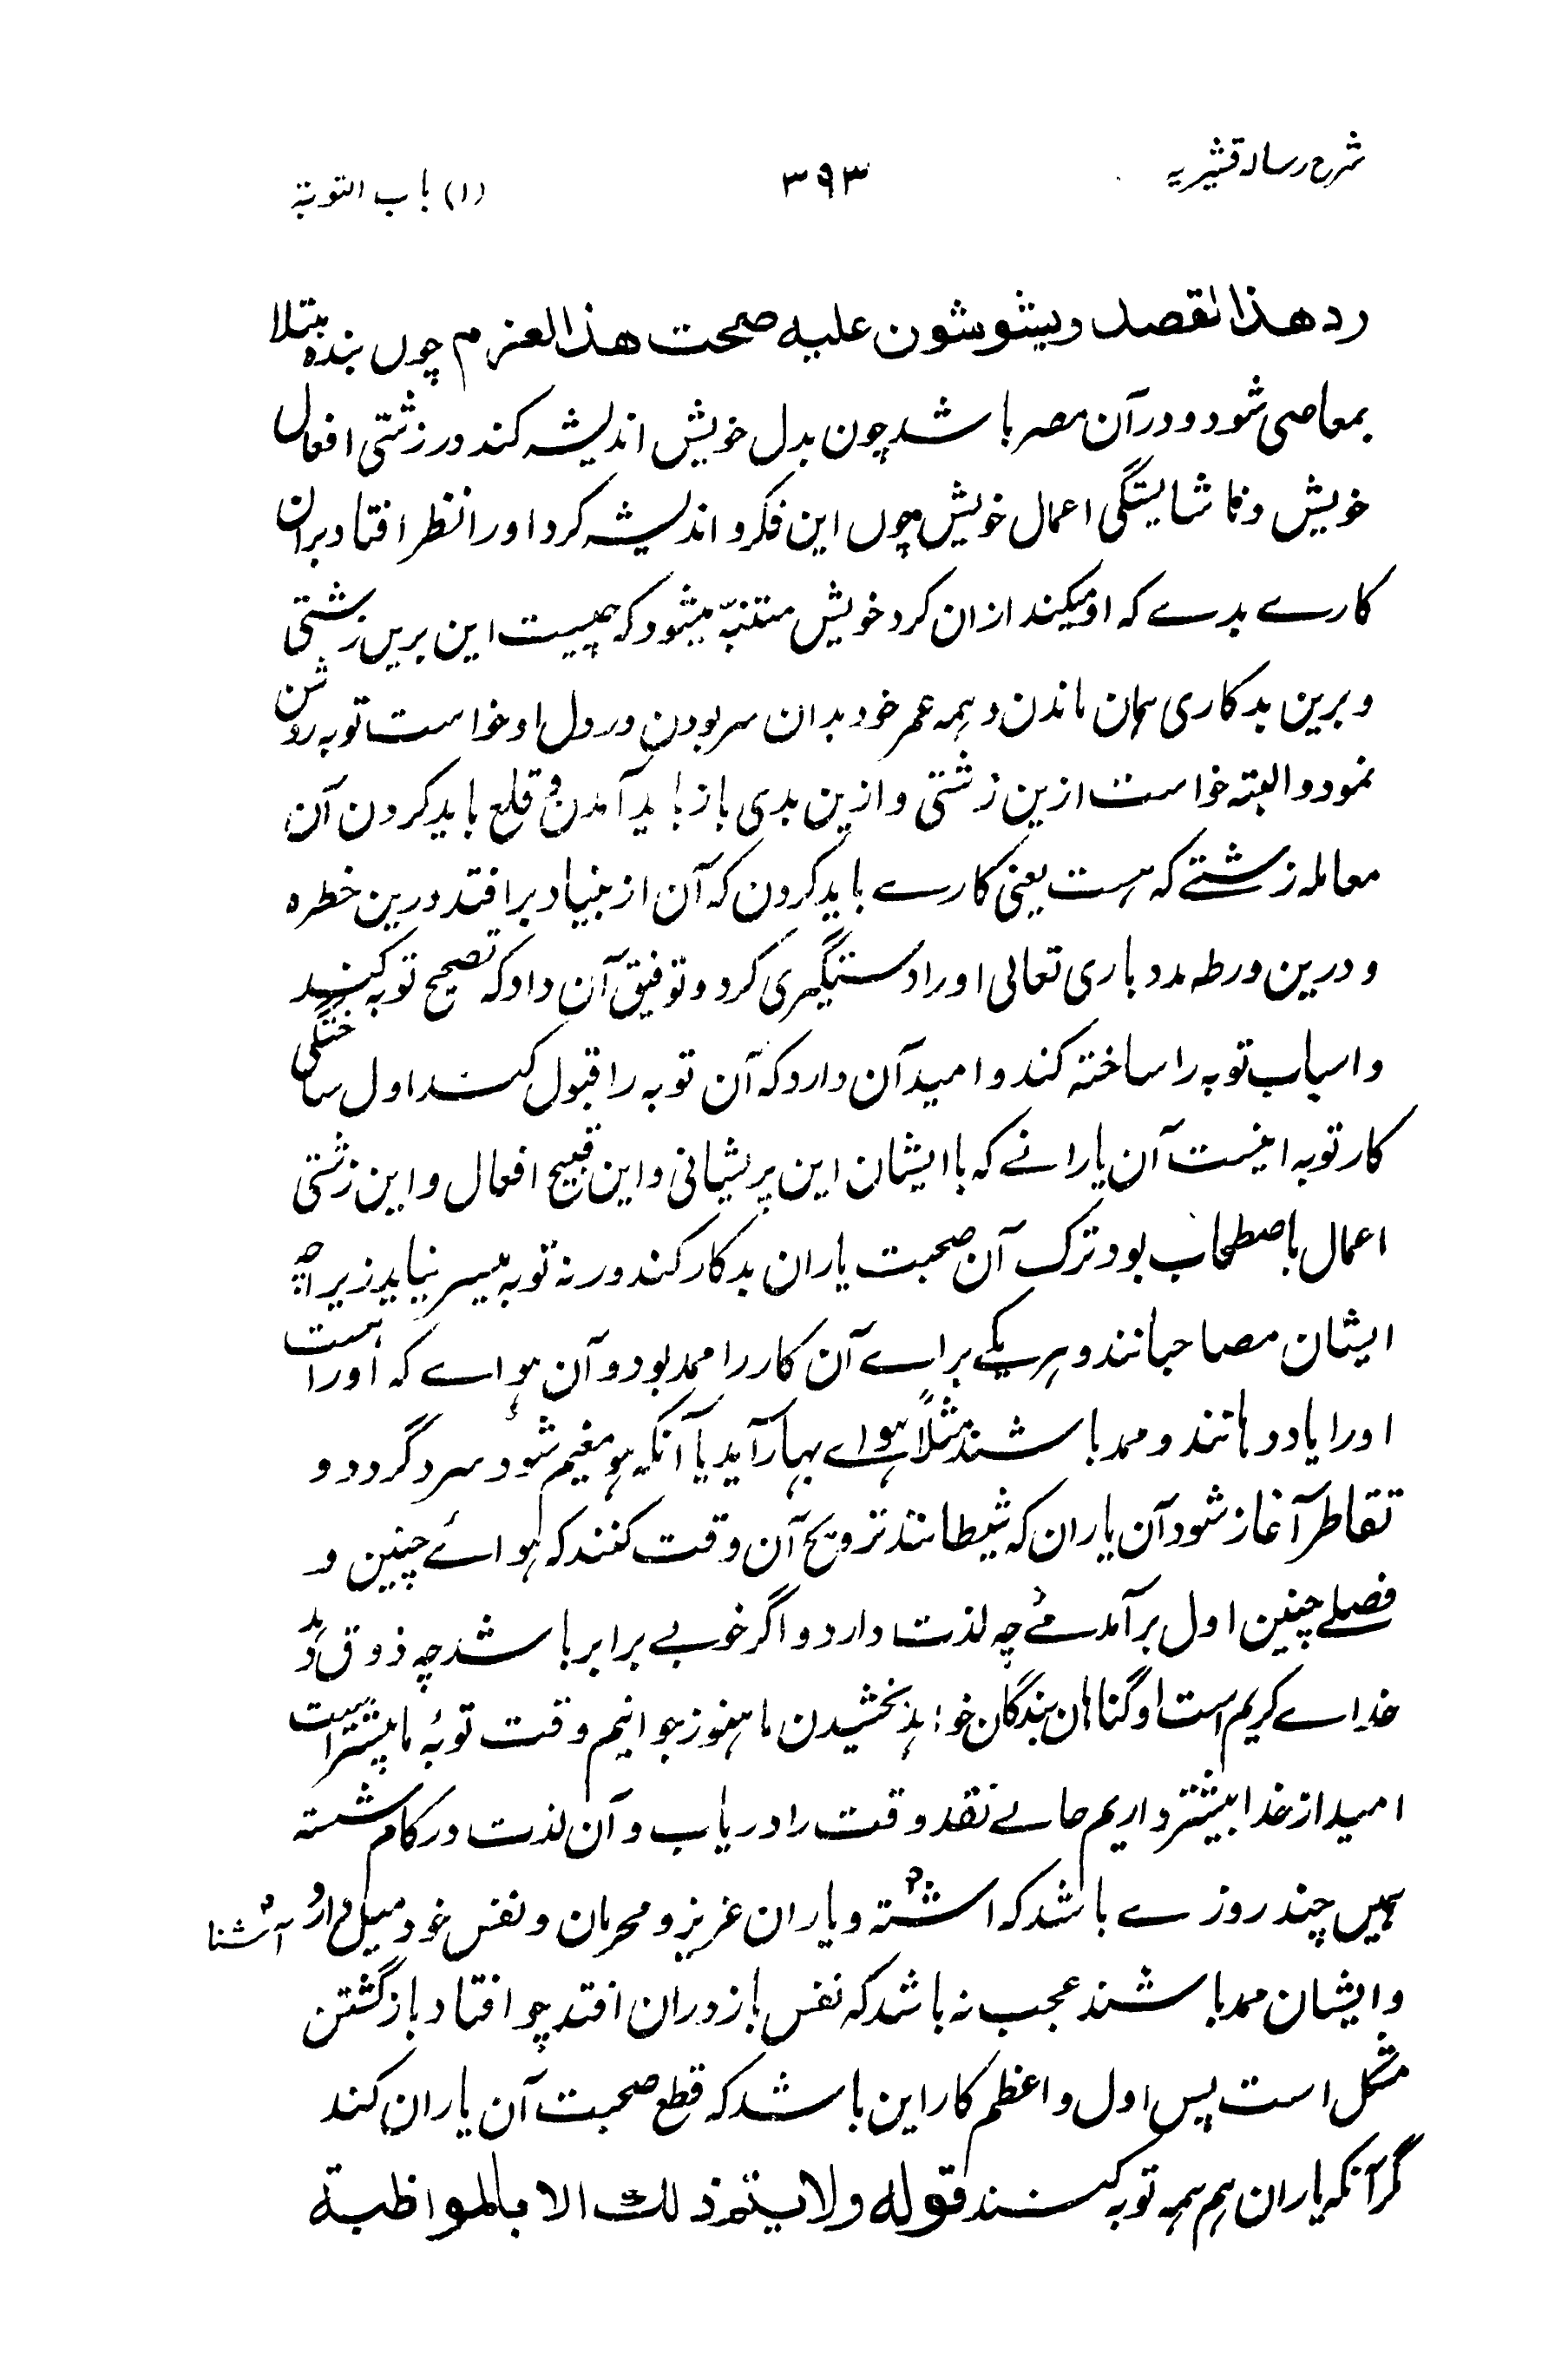 شرح رسالہ قشیریہ
۳۹۳
(۱) باب التوبۃ
رد هذا القصد ويشوشون عليه صحت هذا العزم چوں بندہ مبتلا
بمعاصی شود و در آن مصر باشد چون بدل خویش اندیشہ کند در زشتی افعال
خویش و ناشایستگی اعمال خویش چوں این فکر و اندیشہ کرد او را نظر افتاد بر آن
کارے بدے کہ او میکند از ان کرد خویش متنبّہ میشود کہ چیست این بریں زشتی
و برین بدکاری ہمان ماندن و ہمہ عمر خود بدان سر بودن در دل او خواست توبہ روشن
نمود و البتہ خواست ازین زشتی و ازین بدی باز باید آمدن و قلع باید کردن آن
معاملہ زشتے کہ ہست یعنی کارے باید کردن کہ آن از بنیاد برافتد درین خطرہ
و درین ورطہ مدد باری تعالی او را دستگیری کرد و توفیق آن داد کہ تصحیح توبہ کند
و اسباب توبہ را ساختہ کند و امید آن دارد کہ آن توبہ را قبول کند اول ساختگی
کار توبہ اینست آن یارانے کہ با ایشان این پریشانی و این قبیح افعال و این زشتی
اعمال باصطحاب بود ترک آن صحبت یاران بدکار کند ورنہ توبہ میسر نیاید زیراچہ
ایشان مصاحبانند و ہر یکے براے آن کار را ممد بود و آن ہواے کہ او را است
او را یاد دہانند و ممد باشند مثلاً ہواے بہار آید یا آنکہ ہوا مغیم شود سرد گردد و
تقاطر آغاز شود آن یاران کہ شیطانند ترویح آن وقت کنند کہ ہوائے چنین و
فصلے چنین اول برآمد مئے چہ لذت دارد و اگر خوبے برابر باشد چہ ذوق دہد
خداے کریم است او گناہان بندگان خواہد بخشیدن ما ہنوز جوانیم وقت توبۂ ما پیشتر است
امید از خدا بیشتر داریم حالے نقد وقت را دریاب و آن لذت در کام
ہمیں چند روزے باشد کہ و یاران عزیز و محرمان و نفس خود میل دارد و آشنا
و ایشان ممد باشند عجب نہ باشد کہ نفس باز دران افتد چو افتاد باز گشتن
مشکل است پس اول و اعظم کار این باشد کہ قطع صحبت آن یاران کند
مگر آنکہ یاران ہم ہمہ توبہ کنند قوله ولا يتم ذلك الا بالمواظبة